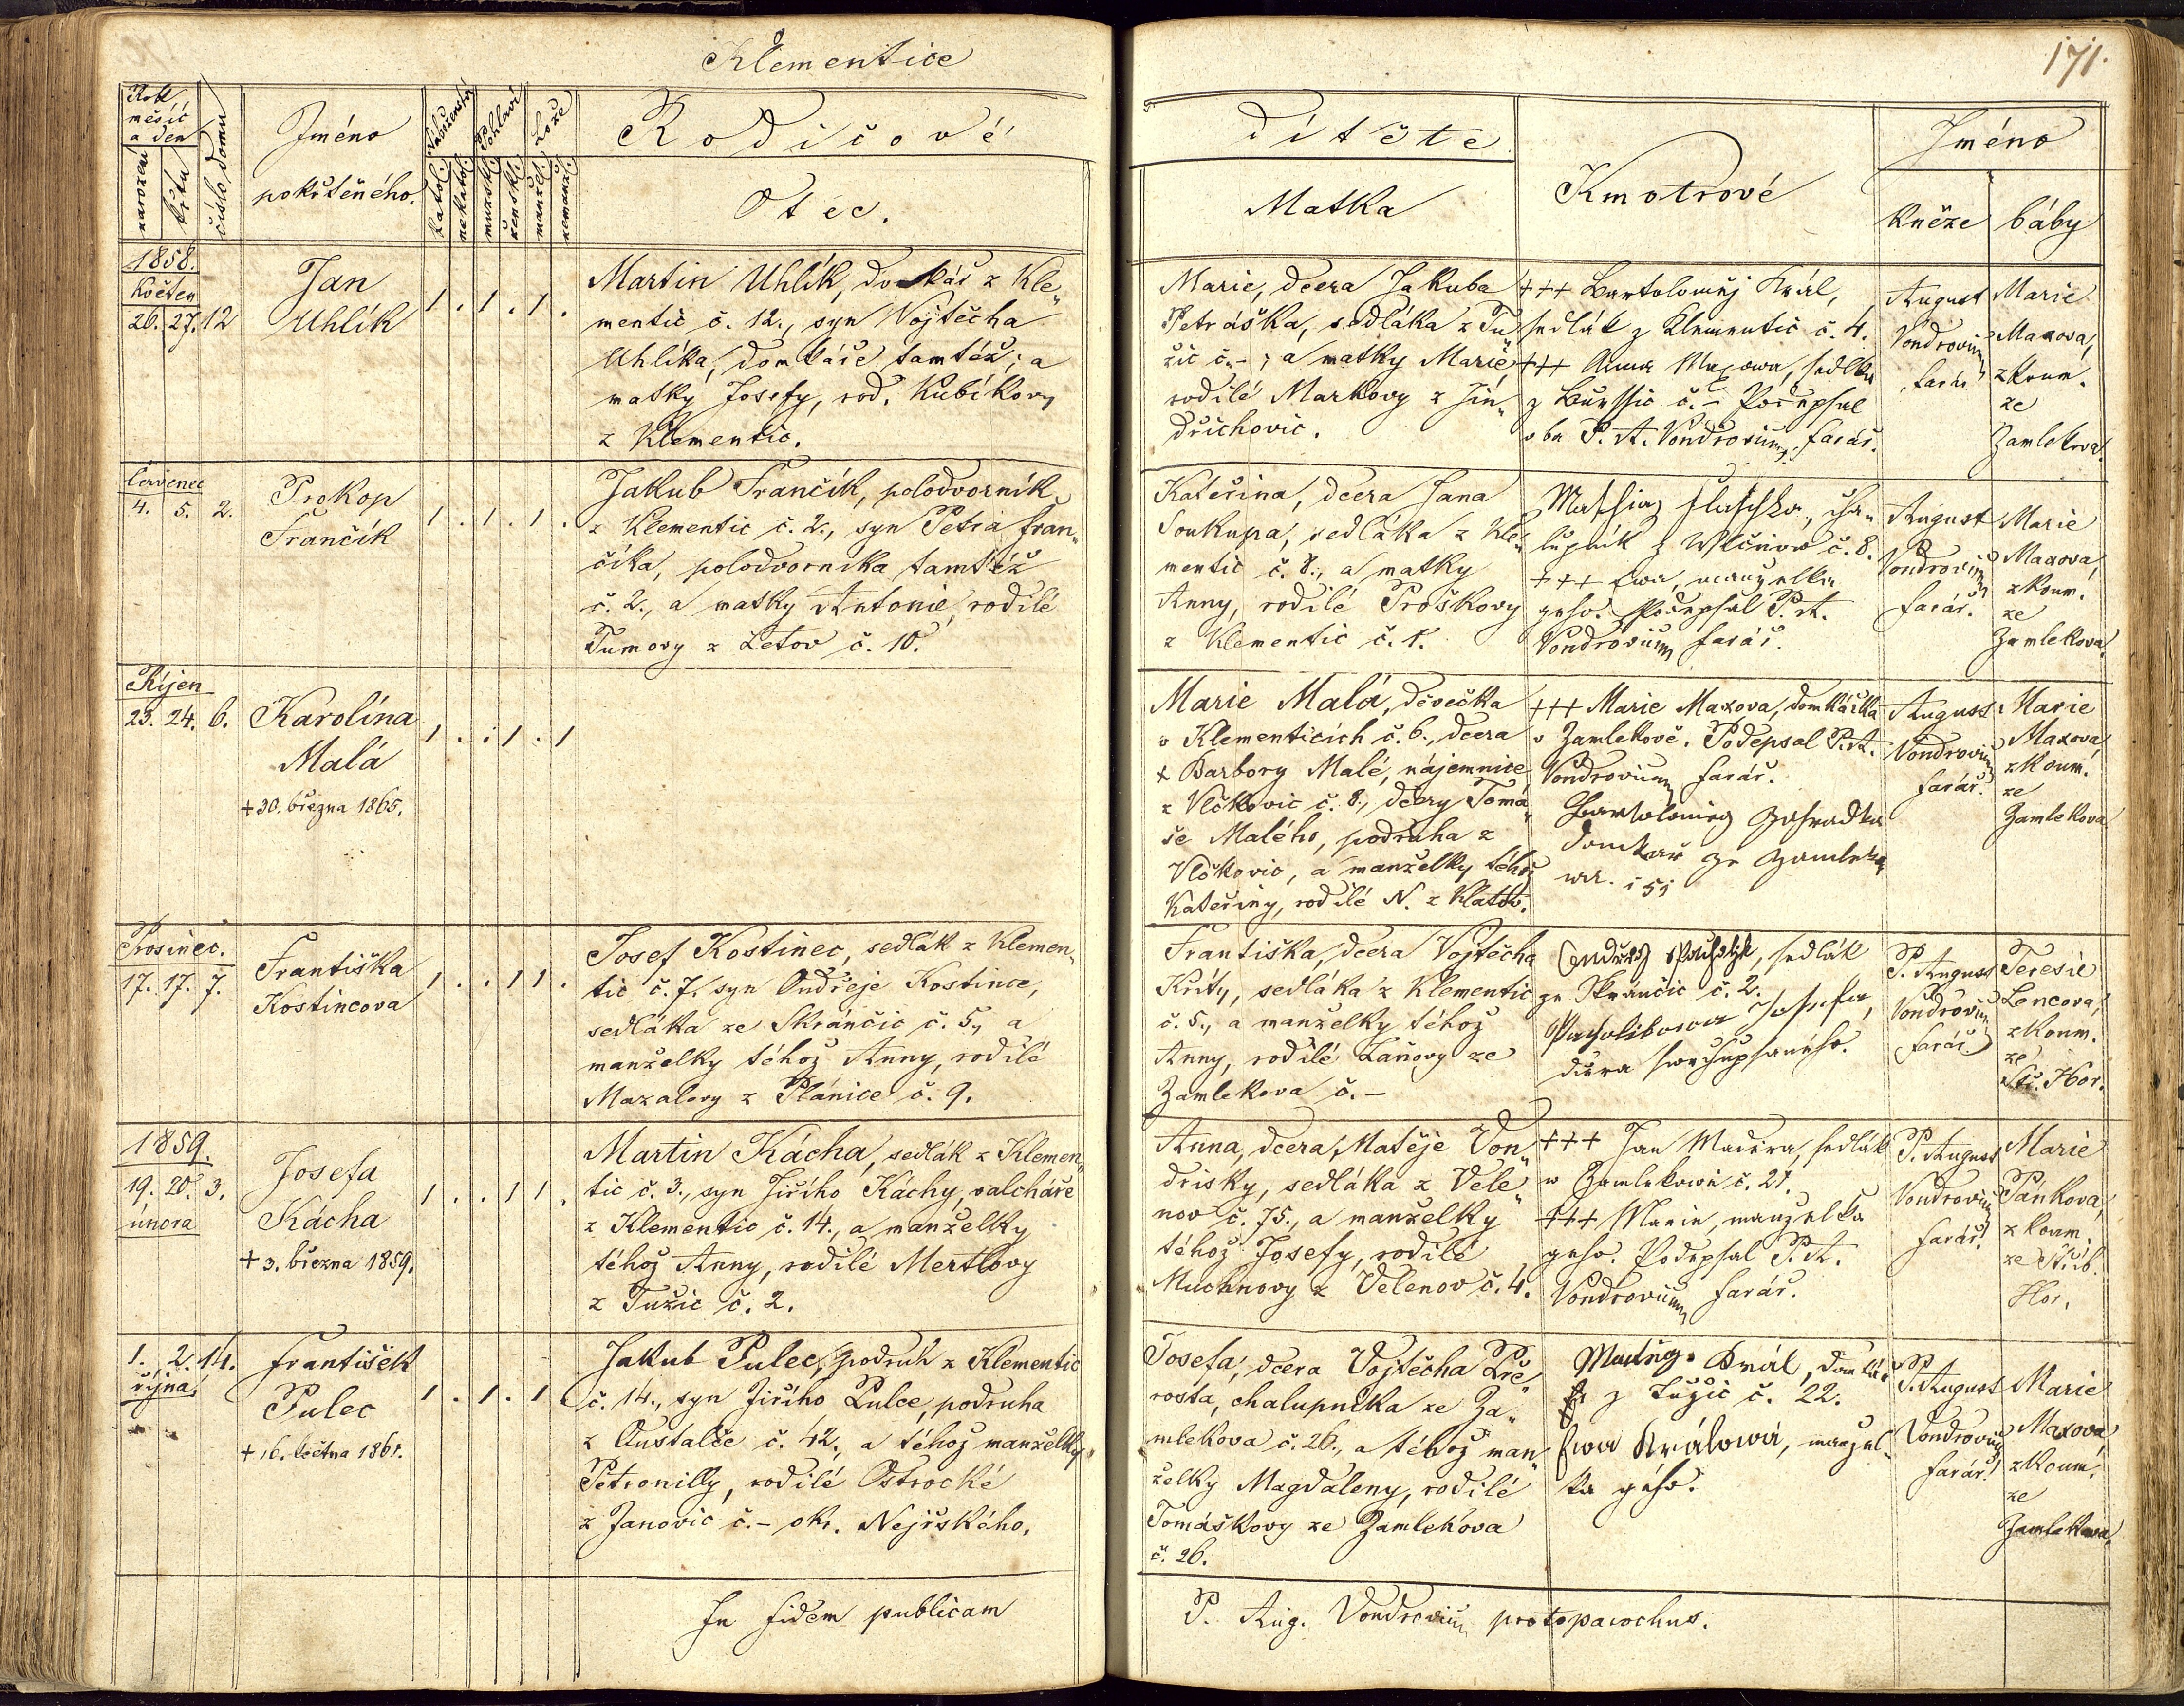 Klementice
171.
Rok
měsíc
a den
narození
křtu
číslo domu
Jméno
pokřtěného.
Náboženství
Pohlaví
Lože
katol.
nekatol.
mužsk.
žensk.
manžel.
nemanž.
Rodičové
Otec.
dítěte
Matka
Kmotrové
Jméno
kněze
báby
1858.
Květen
26. 27. 12
Jan
Uhlík
1 . 1 . 1 .
Martin Uhlík, domkář z Kle„
mentic č. 12., syn Vojtěcha
Uhlíka, domkáře tamtéž; a
matky Josefy, rod. Kubíkovy
z Klementic.
Marie, dcera Jakuba
Petráška, sedláka z Tu„
žic č. - ; a matky Marie
rodilé Markovy z Jin„
dřichovic.
+++ Bartoloměj Král,
sedlák z Klementic č. 4.
+++ Anna Maxowa, sedlka
z č. - Podepsal
oba P. A. Vondrovium, farář.
August
Vondrovium
farář
Marie
Maxova,
zkoum.
ze
Zamlekova.
Červenec
4. 5. 2.
Prokop
Frančík
1 . 1 . 1 .
Jakub Frančík, polodvorník
z Klementic č. 2., syn Petra Fran„
číka, polodvorníka tamtéž
č. 2., a matky Antonie, rodilé
Tumovy z Letov č. 10.
Kateřina, dcera Jana
Soukupa, sedláka z Kle„
mentic č. 8., a matky
Anny, rodilé Proškovy
z Klementic č. 1.
Mathias cha„
lupník z č. 8.
+++ Ewa, manzelka
geho. Podepsal P. A.
Vondrovium farář.
August
Vondrovium
farář.
Marie
Maxova,
zkoum.
ze
Zamlekova.
Říjen
23. 24. 6.
Karolína
Malá
+ 30. března 1865.
1 . . 1 . 1
Marie Malá, děvečka
v Klementicích č. 6., dcera
+ Barbory Malé, nájemnice
z Vlčkovic č. 8., dcery Tomá„
še Malého, podruha z
Vlčkovic, a manželky téhož
Kateřiny, rodilé N. z Klatov.
+++ Marie Maxova, domkářka
v Zamlekově. Podepsal P. A.
Vondrovium farář.
Bartolomieg Zahradka
domkař ze Zamleko
wa. i 51
August
Vondrovium
farář.
Marie
Maxová,
zkoum.
ze
Zamlekova
Prosinec.
17. 17. 7.
Františka
Kostincova
1 . . 1 1 .
Josef Kostinec, sedlák z Klemen„
tic č. 7. syn Ondřeje Kostince,
sedláka ze Skránčic č. 5., a
manželky téhož Anny, rodilé
Mazalovy z Plánice č. 9.
Františka, dcera Vojtěcha
Kříty, sedláka z Klementic
č. 5., a manželky téhož
Anny, rodilé Laňovy ze
Zamlekova č. -
sedlák
ze Skrančic č. 2.
Josefa,
dcera
P. August
Vondrovium
farář.
Teresie
Lencova,
zkoum.
ze
Stř. Hor.
1859.
19. 20. 3.
února
Josefa
Kácha
+ 3. března 1859.
1 . . 1 1 .
Martin Kácha, sedlák z Klemen„
tic č. 3., syn Jiřího Káchy, valcháře
z Klementic č. 14., a manželky
téhož Anny, rodilé Mertlovy
z Tužic č. 2.
Anna, dcera Matěje Von„
drisky, sedláka z Vele„
nov č. 75., a manželky
téhož Josefy, rodilé
Muchnovy z Velenov č. 4.
+++ Jan Madera, sedlák
w Zamlekowě č. 21.
+++ Marie, manzelka
geho. Podepsal P. A.
Vondrovium farář.
P. August
Vondrovium
farář.
Marie
Pánkova,
zkoum.
ze Stříb.
Hor.
1. 2. 14.
října
František
Pulec
+ 16. května 1861.
1 . 1 . 1 .
Jakub Pulec, podruh z Klementic
č. 14., syn Jiřího Pulce, podruha
z Oustalče č. 42., a téhož manželky
Petronilly, rodilé Ostrocké
z Janovic č. - okr. Nejřského.
Josefa, dcera Vojtěcha Pře„
rosta, chalupníka ze Za„
mlekova č. 26., a téhož man„
želky Magdaleny, rodilé
Tomáškovy ze Zamlekova
č. 26.
Matieg Král, domkář
z Tužic č. 22.
Ewa Králowá, manzel„
ka geho.
P. August
Vondrovium
farář.
Marie
Maxova,
zkoum.
ze
Zamlekova.
In fidem publicam
P. Aug. Vondrovium protoparochus.